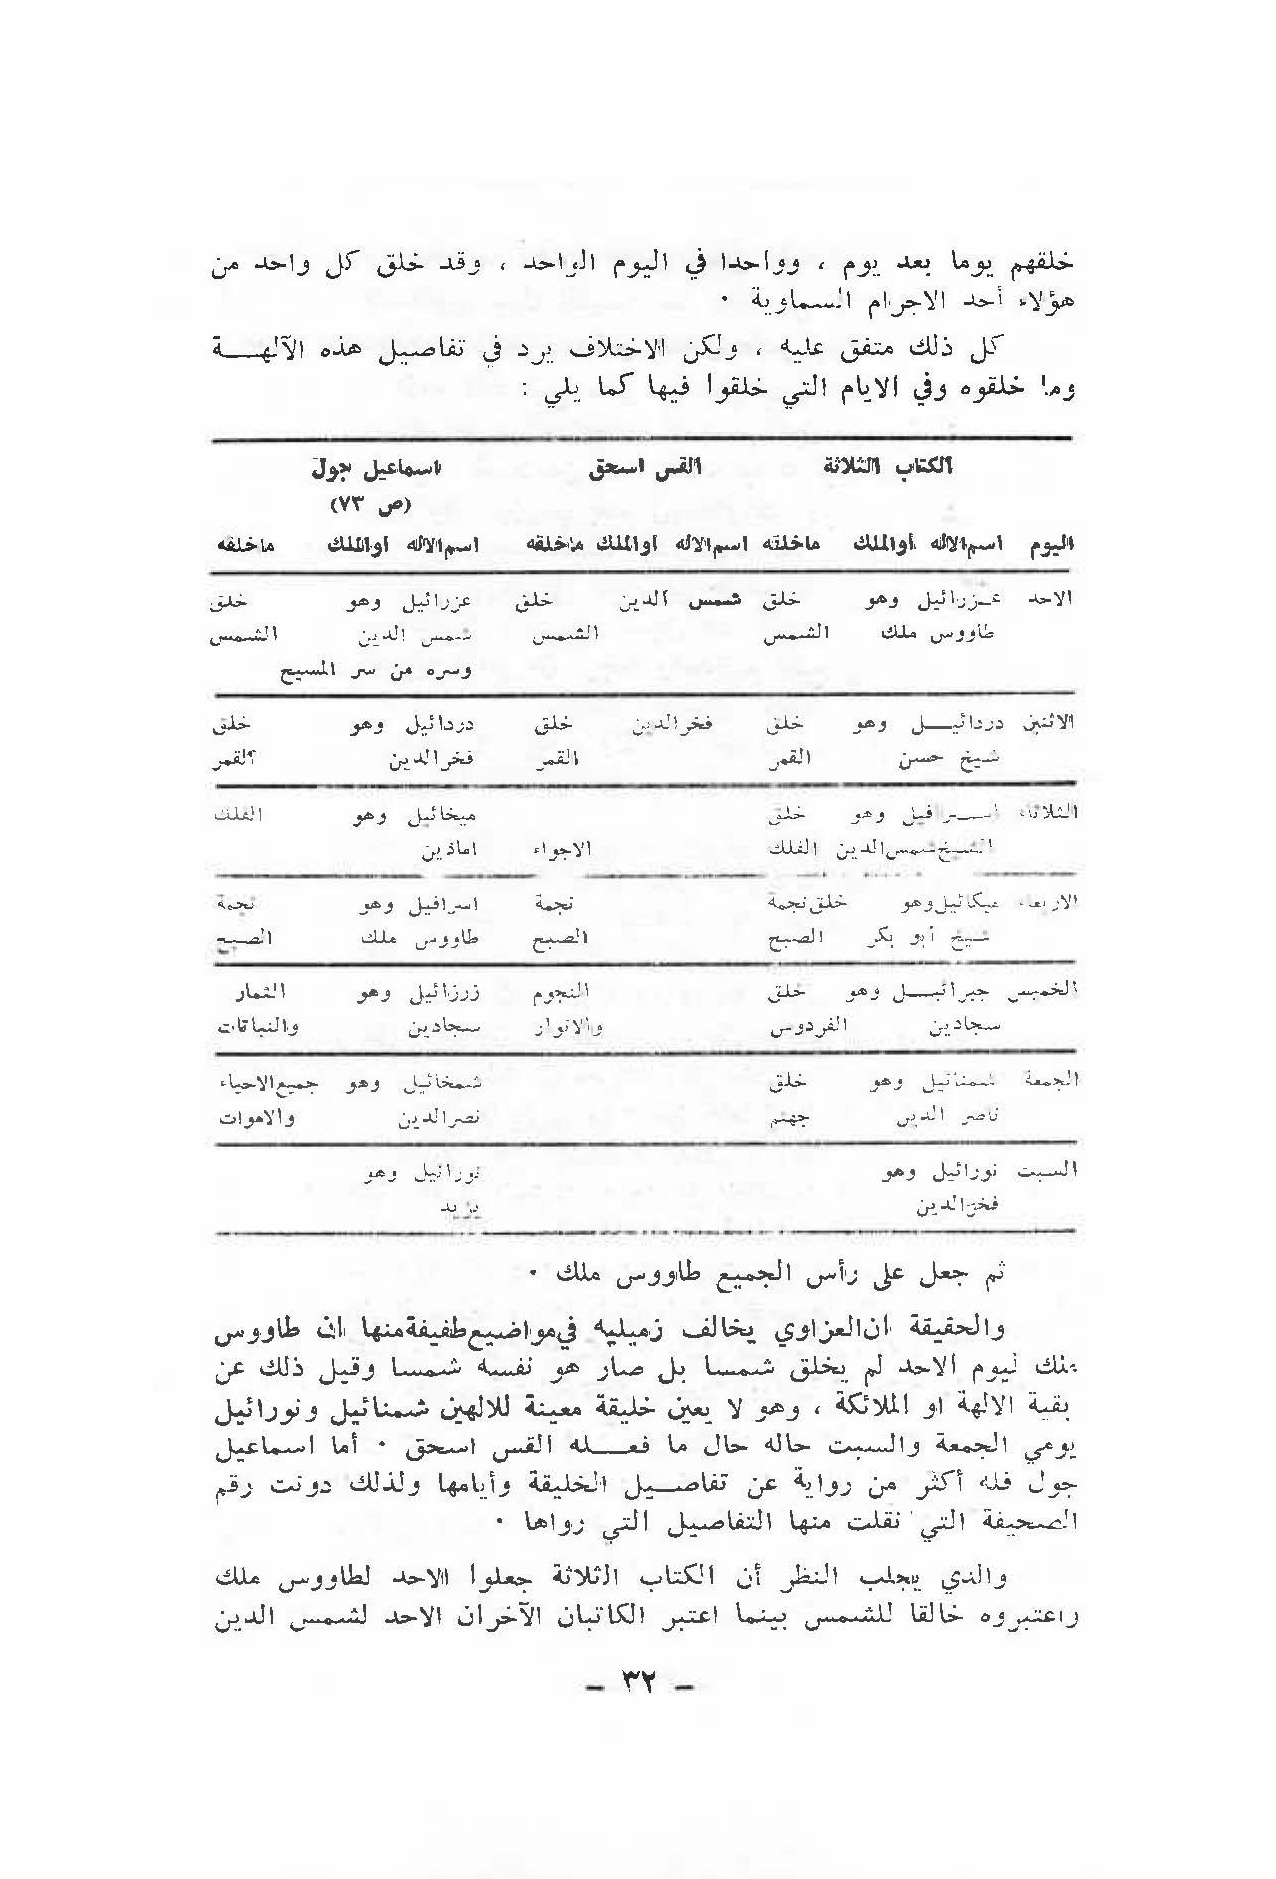 خلقهم يوما بعد يوم ، وواحدا في اليوم الواحد ، وقد خلق كل واحد من
هؤلاء أحد الاجرام السماوية •
كل ذلك متفق عليه ، ولكن الاختلاف يرد في تفاصيل هذه الآلهة
وما خلقوه وفي الايام التي خلقوا فيها كما يلي :
الكتاب الثلاثة القس اسحق اسماعيل جول
(ص ٧٣)
اليوم اسم الاله أو الملك ما خلقه اسم الاله او الملك ما خلقه اسم الاله او الملك ما خلقه
الاحد عزرائيل وهو خلق شمس الدين خلق عزرائيل وهو خلق
طاووس ملك الشمس الشمس شمس الدين الشمس
وسره من سر المسيح
الاثنين دردائيل وهو خلق فخر الدين خلق دردائيل وهو خلق
شيخ حسن القمر القمر فخر الدين القمر
الثلاثاء اسرافيل وهو خلق ميخائيل وهو الفلك
الشيخ شمس الدين الفلك الاجواء امادين
الاربعاء ميكائيل وهو خلق نجمة نجمة اسرافيل وهو نجمة
شيخ أبو بكر الصبح الصبح طاووس ملك الصبح
الخميس جبرائيل وهو خلق النجوم زرزائيل وهو الثمار
سجادين الفردوس والانوار سجادين والنباتات
الجمعة شمنائيل وهو خلق شمخائيل وهو جميع الاحياء
ناصر الدين جهنم نصر الدين والاموات
السبت نورائيل وهو نورائيل وهو
فخر الدين يزيد
ثم جعل على رأس الجميع طاووس ملك •
والحقيقة ان العزاوي يخالف زميليه في مواضيع طفيفة منها ان طاووس
ملك ليوم الاحد لم يخلق شمسا بل صار هو نفسه شمسا وقيل ذلك عن
بقية الالهة او الملائكة ، وهو لا يعين خليقة معينة للالهين شمنائيل ونورائيل
يومي الجمعة والسبت حاله حال ما فعله القس اسحق • أما اسماعيل
جول فله أكثر من رواية عن تفاصيل الخليقة وأيامها ولذلك دونت رقم
الصحيفة التي نقلت منها التفاصيل التي رواها •
والذي يجلب النظر أن الكتاب الثلاثة جعلوا الاحد لطاووس ملك
واعتبروه خالقا للشمس بينما اعتبر الكاتبان الآخران الاحد لشمس الدين
– ٣٢ –